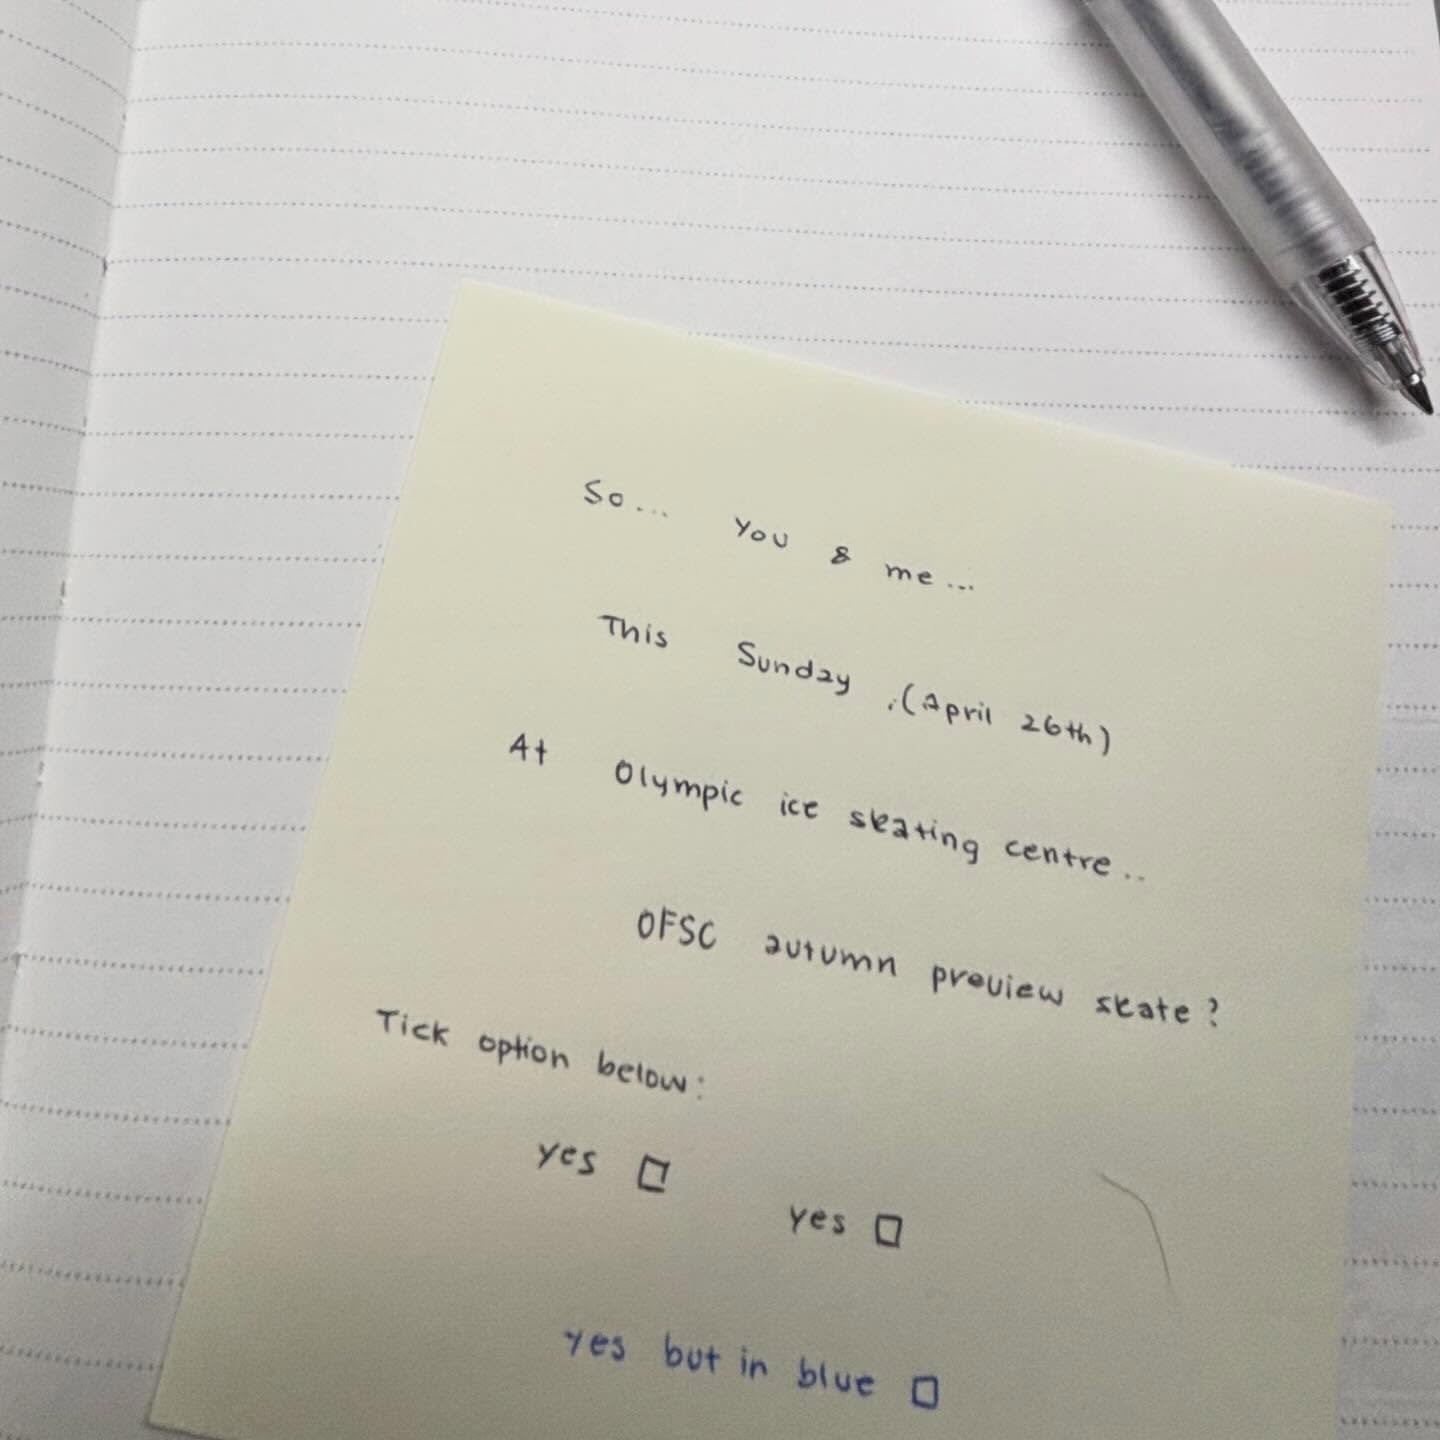 So... You & me...
This Sunday .(April 26th)
At Olympic ice skating centre..
OFSC autumn preview skate?
Tick option below:
yes □
yes □
yes but in blue □